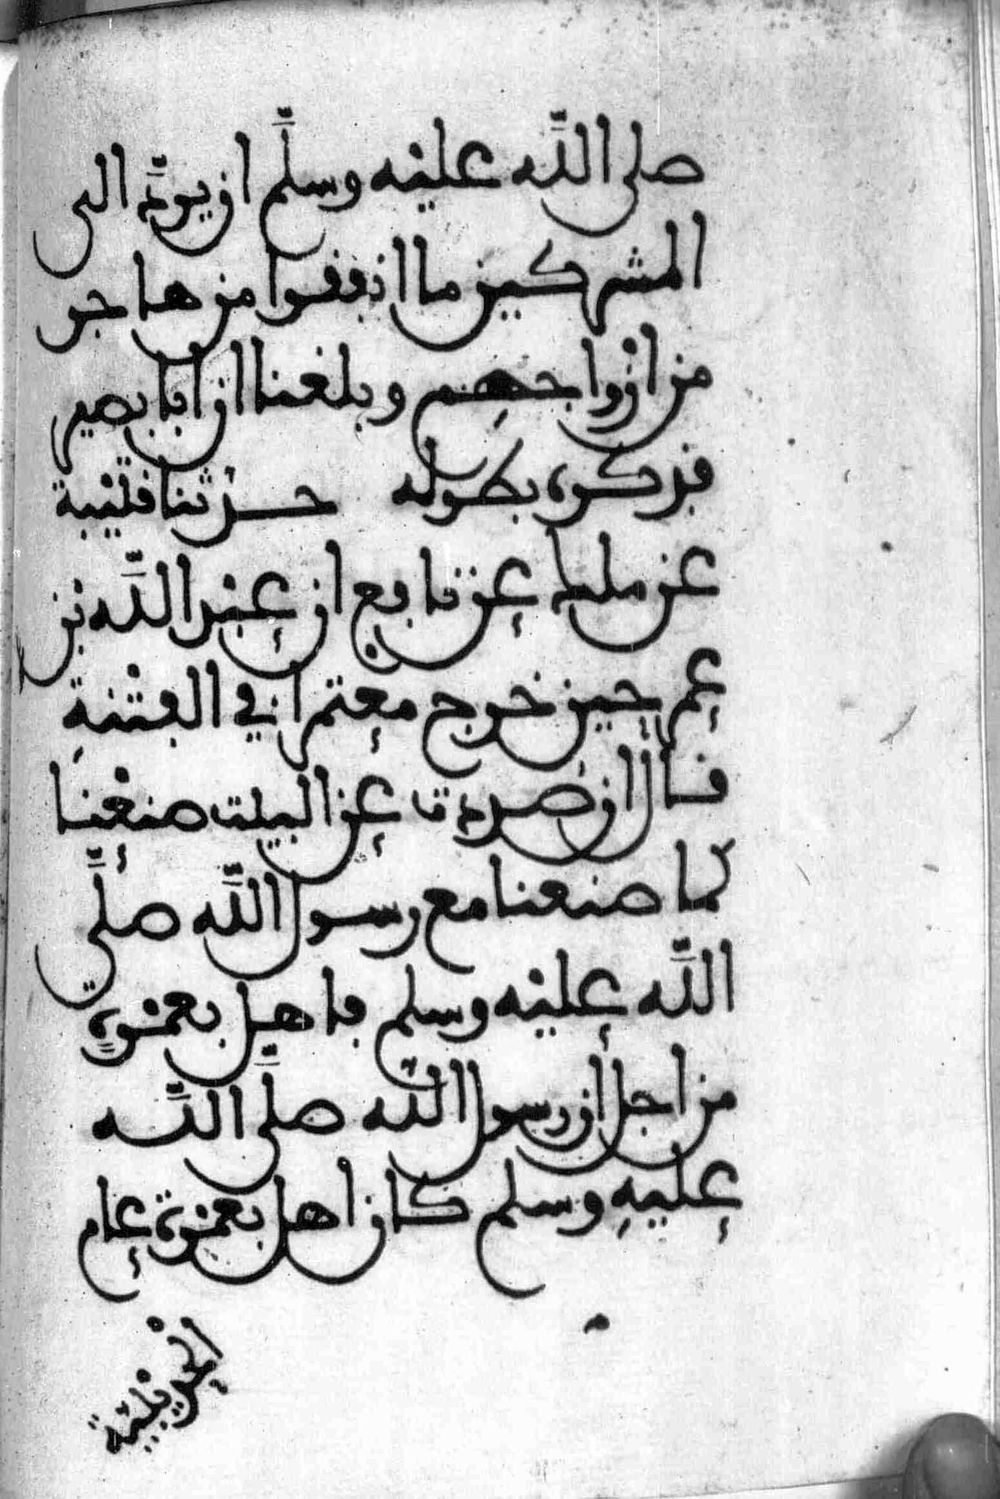 صلى الله عليه وسلم ان يرد الى
المشركين ما انفقوا من هاجر
من ازواجهم وبلغنا ان ابا بصير
فذكره بطوله حدثنا قتيبة
عن ملك عن نافع ان عبد الله بن
عمر حين خرج معتمرا في الفتنة
قال ان صددت عن البيت صنعنا
كما صنعنا مع رسول الله صلى
الله عليه وسلم فاهل بعمرة
من اجل ان رسول الله صلى الله
عليه وسلم كان اهل بعمرة عام
الحديبية